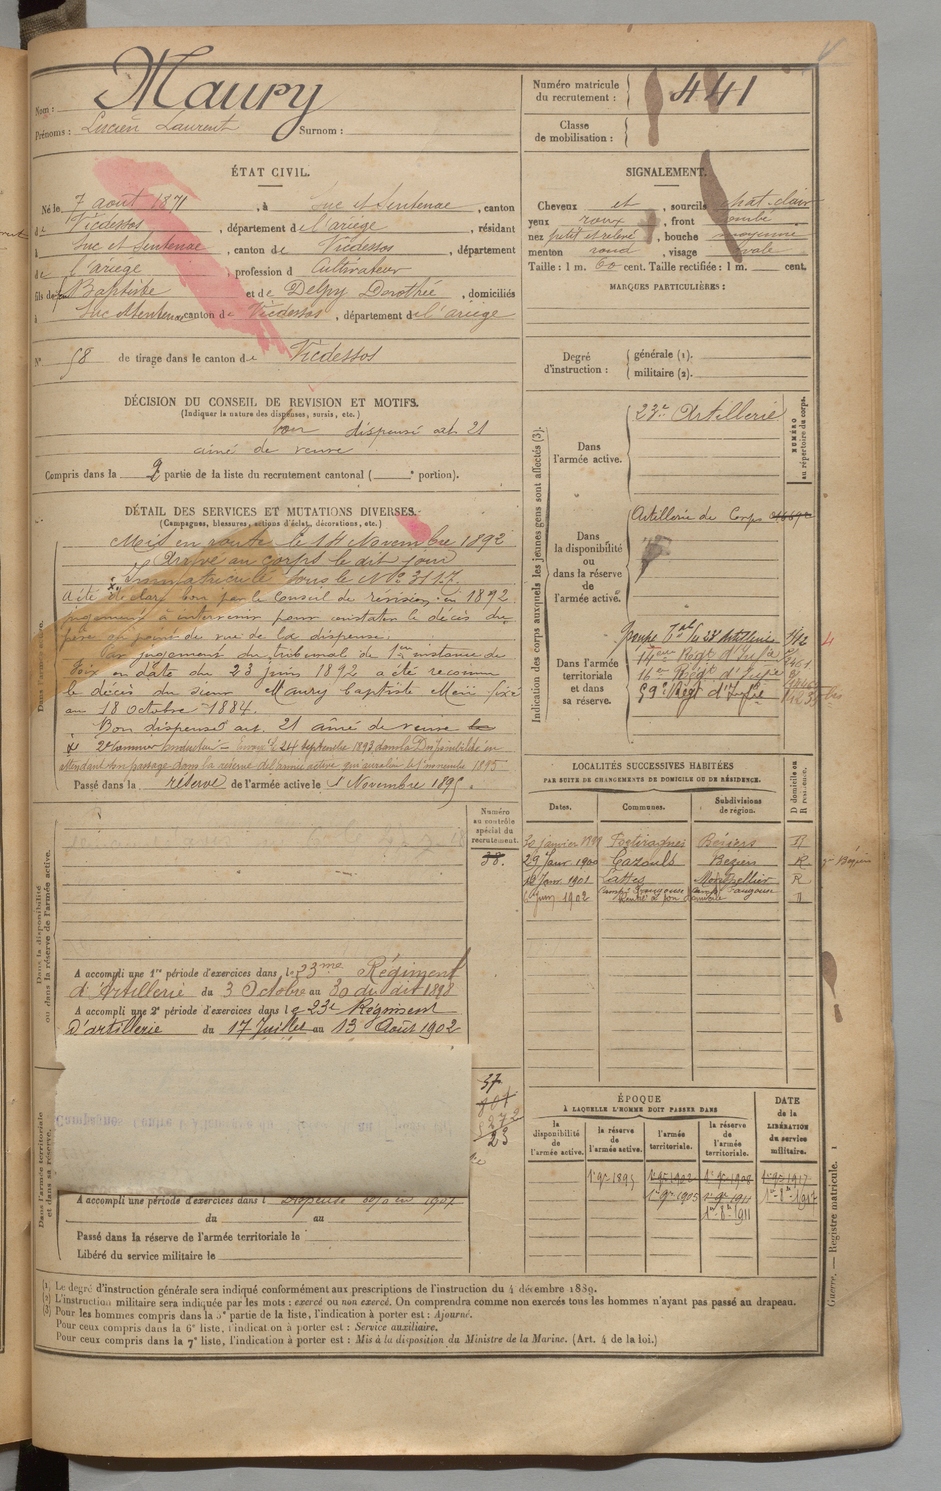 Nom : Maury
Prénoms : Lucien Laurent Surnom :
Numéro matricule du recrutement : 441
Classe de mobilisation :
ÉTAT CIVIL.
Né le 7 août 1871, à Suc et Sentenac, canton
de Vicdessos, département de l'ariège, résidant
à Suc et Sentenac, canton de Vicdessos, département
de l'ariège, profession d Cultivateur
fils de Baptiste et de Delpy Dorothée, domiciliés
à Suc et Sentenac canton de Vicdessos, département de l'ariège
N° 58 de tirage dans le canton de Vicdessos
SIGNALEMENT.
Cheveux et, sourcils chat. clair
yeux roux, front bombé
nez petit et relevé, bouche moyenne
menton rond, visage ovale
Taille : 1 m. 60 cent. Taille rectifiée : 1 m. cent.
MARQUES PARTICULIÈRES :
Degré d'instruction : générale (1).
militaire (2).
DÉCISION DU CONSEIL DE REVISION ET MOTIFS.
(Indiquer la nature des dispenses, sursis, etc.)
bon dispensé art. 21
ainé de veuve
Compris dans la 2 partie de la liste du recrutement cantonal ( portion).
DÉTAIL DES SERVICES ET MUTATIONS DIVERSES.
(Campagnes, blessures, actions d'éclat, décorations, etc.)
Dans l'armée active.
Mis en route le 14 Novembre 1892
Arrivé au corps le dit jour
Immatriculé sous le N° 3117.
a été déclaré bon par le Conseil de révision en 1892
jugement à intervenir pour constater le décès du
père au point de vue de la dispense.
Par jugement du tribunal de 1re instance de
Foix en date du 23 juin 1892 a été reconnu
le décès du sieur Maury Baptiste fixé
au 18 octobre 1884.
Bon dispensé art. 21 aîné de veuve
2e Canonnier conducteur - Envoyé le 24 septembre 1893 dans la Disponibilité en
attendant son passage dans la réserve de l'armée active qui aura lieu le 1er novembre 1895
Passé dans la réserve de l'armée active le 1 Novembre 1895.
Indication des corps auxquels les jeunes gens sont affectés (3).
NUMÉRO au répertoire du corps.
Dans l'armée active. 23e Artillerie
Dans la disponibilité ou dans la réserve de l'armée active. Artillerie de Corps
Dans l'armée territoriale et dans sa réserve.
Groupe Tal du 23e Artillerie
14me Régt d'Infie
16me Régt d'Infie
59e Régt d'Infie
LOCALITÉS SUCCESSIVES HABITÉES
PAR SUITE DE CHANGEMENTS DE DOMICILE OU DE RÉSIDENCE.
Dates. Communes. Subdivisions de région. D domicile ou R résidence.
30 janvier 1899 Portiragnes Béziers R
29 Janr 1900 Cazouls Beziers R
Janr 1901 Lattes Montpellier R
Juin 1902
Numéro au contrôle spécial du recrutement.
38.
Dans la disponibilité ou dans la réserve de l'armée active.
A accompli une 1re période d'exercices dans le 23me Régiment
d'Artillerie du 3 Octobre au 30 du dit 1898
A accompli une 2e période d'exercices dans le 23e Régiment
d'artillerie du 17 Juillet au 13 Août 1902
37
272
23
Dans l'armée territoriale et dans sa réserve.
A accompli une période d'exercices dans l Dispensé 1907
du au
Passé dans la réserve de l'armée territoriale le
Libéré du service militaire le
ÉPOQUE
À LAQUELLE L'HOMME DOIT PASSER DANS
la disponibilité de l'armée active. la réserve de l'armée active. l'armée territoriale. la réserve de l'armée territoriale. DATE de la LIBÉRATION du service militaire.
1er 9bre 1895 1er 9bre 1902 1er 9bre 1908 1er 9bre 1917
1er 9bre 1905 1er 9bre 1911 1er 8bre 1917
1er 8bre 1911
(1) Le degré d'instruction générale sera indiqué conformément aux prescriptions de l'instruction du 4 décembre 1889.
(2) L'instruction militaire sera indiquée par les mots : exercé ou non exercé. On comprendra comme non exercés tous les hommes n'ayant pas passé au drapeau.
(3) Pour les hommes compris dans la 5e partie de la liste, l'indication à porter est : Ajourné.
Pour ceux compris dans la 6e liste, l'indication à porter est : Service auxiliaire.
Pour ceux compris dans la 7e liste, l'indication à porter est : Mis à la disposition du Ministre de la Marine. (Art. 4 de la loi.)
Guerre. — Registre matricule. 1